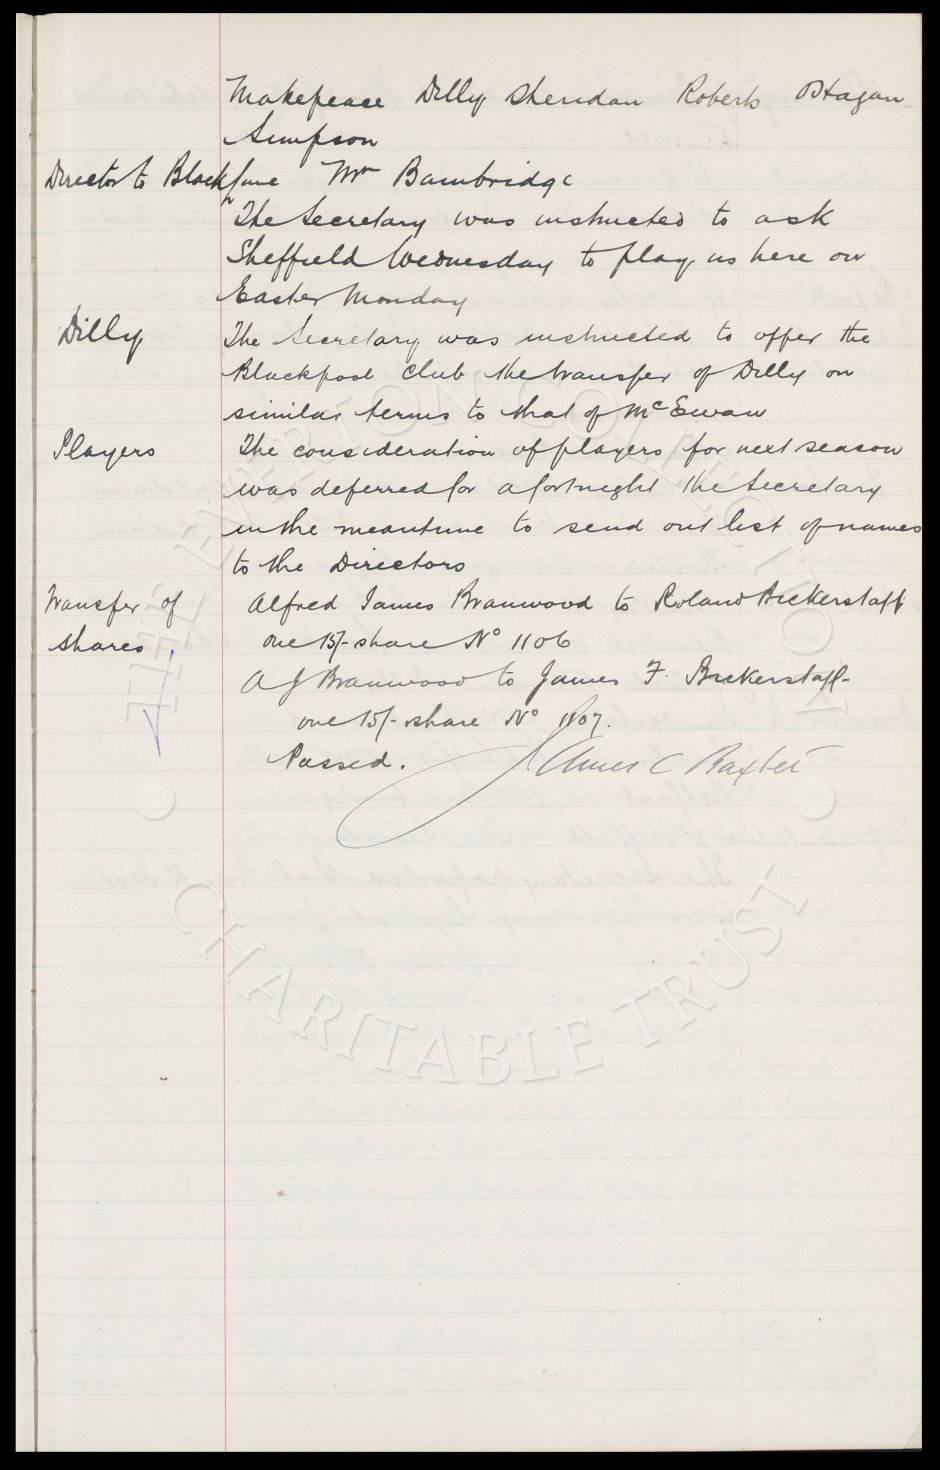 Makepeace Dilly Sheridan Roberts OHagan
Simpson
Director to Blackpool Mr Bambridge
The Secretary was instructed to ask
Sheffield Wednesday to play us here on
Easter Monday
Dilly The Secretary was instructed to offer the
Blackpool Club the transfer of Dilly on
similar terms to that of McEwan
Players The consideration of players for next season
was deferred for a fortnight the Secretary
in the meantime to send out list of names
to the Directors
Transfer of Alfred James Branwood to Roland Bickerstaff
shares one 15/- share No 1106
A J Branwood to James F. Bickerstaff
one 15/- share No 1107.
Passed. James C Baxter
THE EVERTON COLLECTION
CHARITABLE TRUST